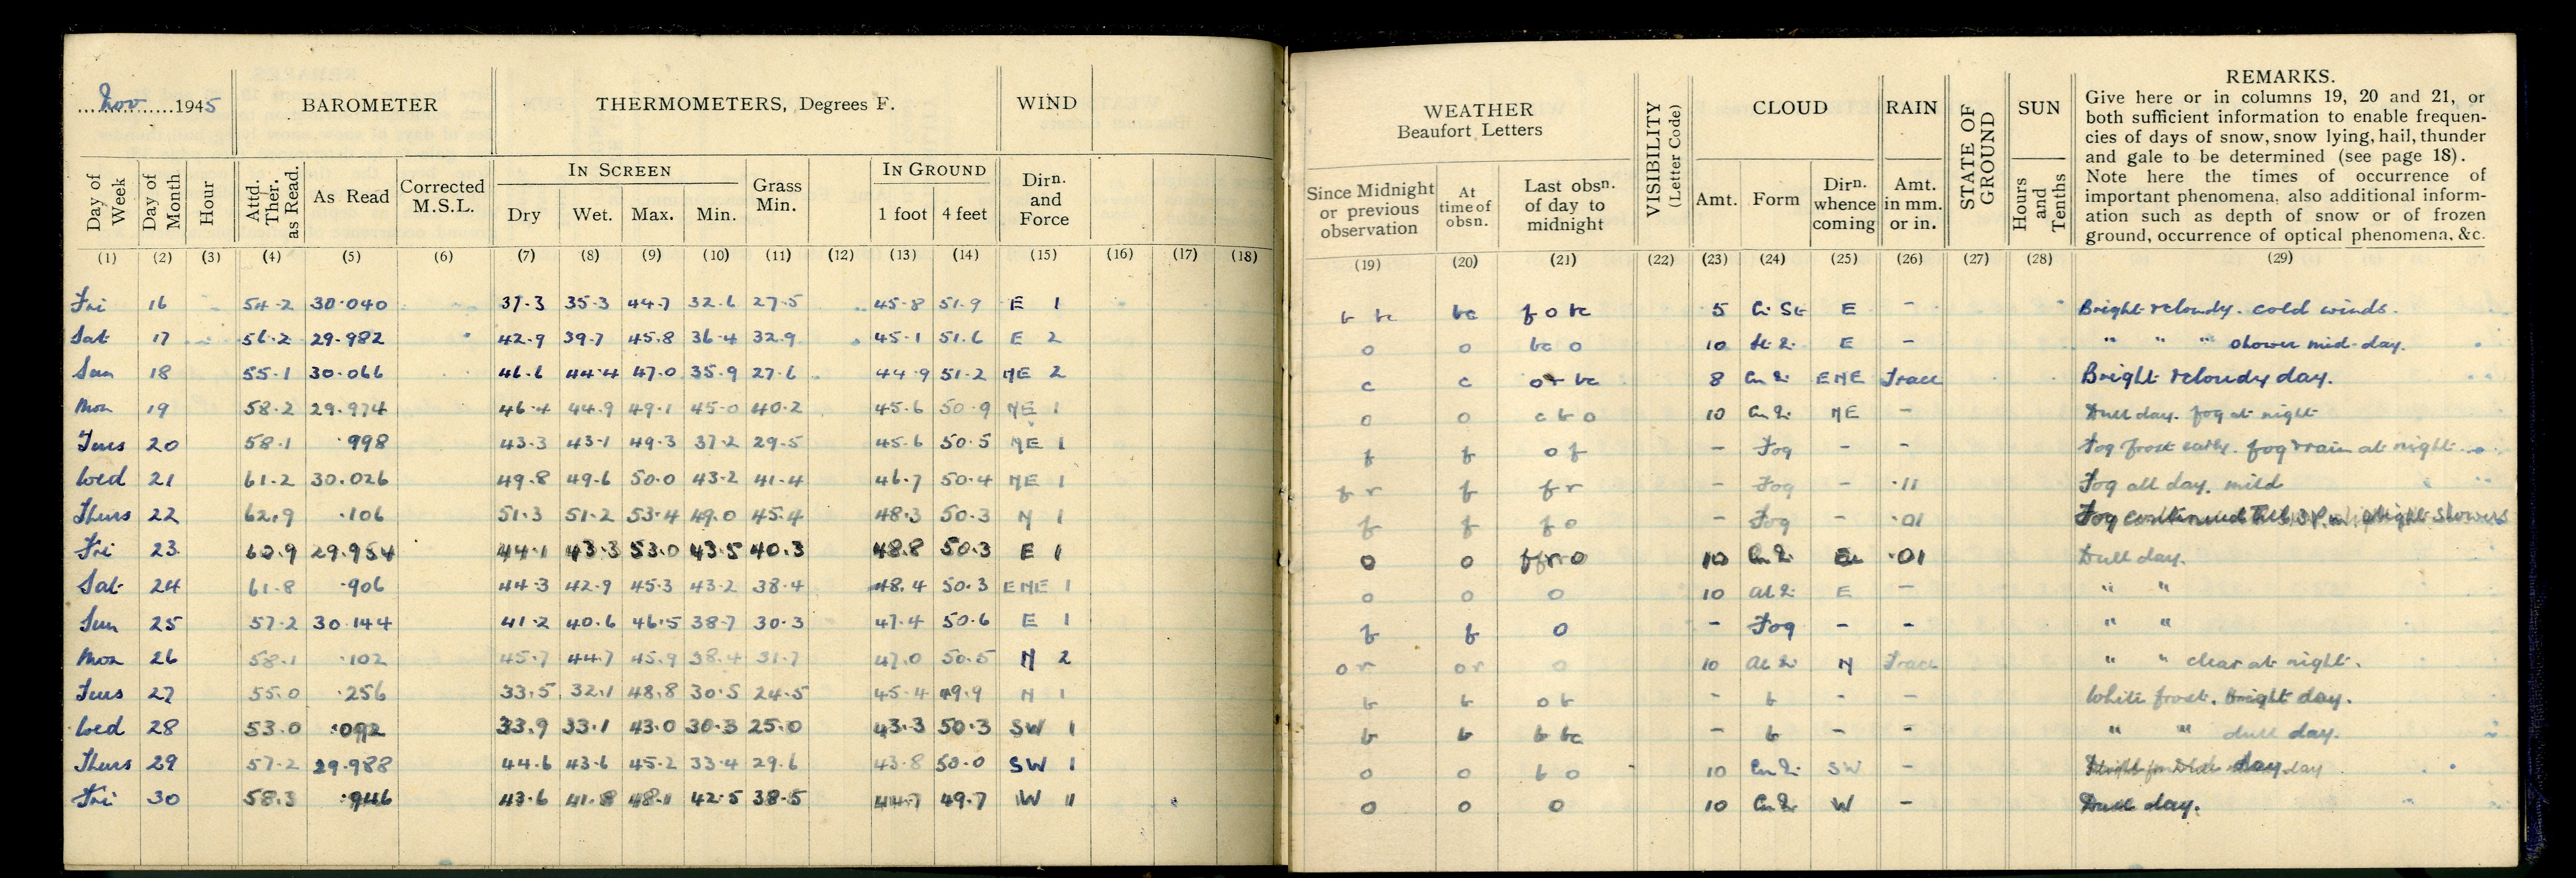 Nov 1945 BAROMETER THERMOMETERS, Degrees F. WIND
Day of Week Day of Month Hour Attd. Ther. as Read. As Read Corrected M.S.L. IN SCREEN Dry Wet. Max. Min. Grass Min. IN GROUND 1 foot 4 feet Dirn. and Force
(1) (2) (3) (4) (5) (6) (7) (8) (9) (10) (11) (12) (13) (14) (15) (16) (17) (18)
Fri 16 54.2 30.040 37.3 35.3 44.7 32.6 27.5 45.8 51.9 E 1
Sat 17 56.2 29.982 42.9 39.7 45.8 36.4 32.9 45.1 51.6 E 2
Sun 18 55.1 30.066 46.6 44.4 47.0 35.9 27.6 44.9 51.2 NE 2
Mon 19 58.2 29.974 46.4 44.9 49.1 45.0 40.2 45.6 50.9 NE 1
Tues 20 58.1 .998 43.3 43.1 49.3 37.2 29.5 45.6 50.5 NE 1
Wed 21 61.2 30.026 49.8 49.6 50.0 43.2 41.4 46.7 50.4 NE 1
Thurs 22 62.9 .106 51.3 51.2 53.4 49.0 45.4 48.3 50.3 N 1
Fri 23 60.9 29.954 44.1 43.3 53.0 43.5 40.3 48.8 50.3 E 1
Sat 24 61.8 .906 44.3 42.9 45.3 43.2 38.4 48.4 50.3 ENE 1
Sun 25 57.2 30.144 41.2 40.6 46.5 38.7 30.3 47.4 50.6 E 1
Mon 26 58.1 .102 45.7 44.7 45.9 38.4 31.7 47.0 50.5 N 2
Tues 27 55.0 .256 33.5 32.1 48.8 30.5 24.5 45.4 49.9 N 1
Wed 28 53.0 .092 33.9 33.1 43.0 30.3 25.0 43.3 50.3 SW 1
Thurs 29 57.2 29.988 44.6 43.6 45.2 33.4 29.6 43.8 50.0 SW 1
Fri 30 58.3 .946 43.6 41.8 48.1 42.5 38.5 44.7 49.7 W
WEATHER Beaufort Letters VISIBILITY (Letter Code) CLOUD RAIN STATE OF GROUND SUN REMARKS.
Give here or in columns 19, 20 and 21, or
both sufficient information to enable frequen-
cies of days of snow, snow lying, hail, thunder
and gale to be determined (see page 18).
Note here the times of occurrence of
important phenomena, also additional inform-
ation such as depth of snow or of frozen
ground, occurrence of optical phenomena, &c.
Since Midnight or previous observation At time of obsn. Last obsn. of day to midnight Amt. Form Dirn. whence coming Amt. in mm. or in. Hours and Tenths
(19) (20) (21) (22) (23) (24) (25) (26) (27) (28) (29)
b bc bc f o bc 5 Ci-St E - Bright & cloudy. cold winds.
o o bc o 10 E - " " " shower mid-day.
c c o r bc 8 ENE Trace Bright & cloudy day.
o o c b o 10 NE - Dull day. fog at night
f f o f - Fog - - Fog frost early. fog & rain at night
f r f f r - Fog - .11 Fog all day. mild
f f f o - Fog - .01 Fog continued showers
o o o 10 .01 Dull day.
o o o 10 E - " "
f f o - Fog - - " "
o r o r o 10 N Trace " " clear at night.
b b o b - b - - White frost. Bright day.
b b b bc - b - - " " dull day.
o o b o 10 SW - day
o o o 10 W - Dull day.